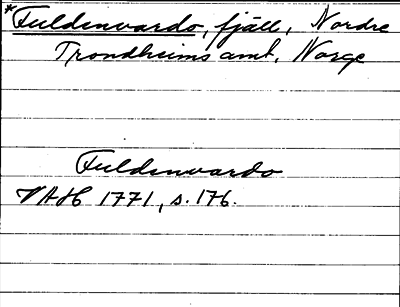 *Fuldenvardo, fjäll, Nordre
Trondheims amt, Norge
Fuldenvardo
VAH 1771, s. 176.